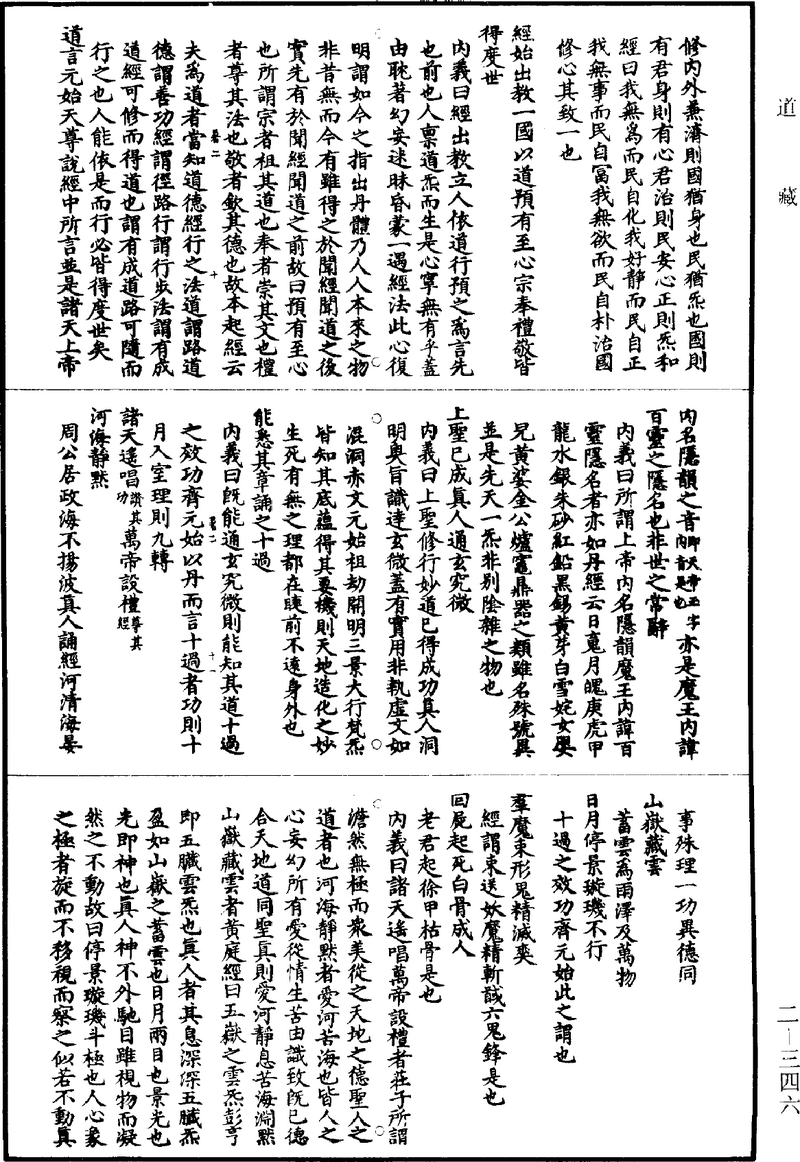 道藏
修內外兼濟則國猶身也民猶炁也國則
有君身則有心君治則民安心正則炁和
經曰我無爲而民自化我好靜而民自正
我無事而民自富我無欲而民自朴治國
修心其致一也
經始出教一國以道預有至心宗奉禮敬皆
得度世
內義曰經出教立人依道行預之爲言先
也前也人禀道炁而生是心寧無有乎蓋
由耽著幻妄迷昧昏蒙一遇經法此心復
明謂如今之指出丹體乃人人本來之物
非昔無而今有雖得之於聞經聞道之後
實先有於聞經聞道之前故曰預有至心
也所謂宗者祖其道也奉者崇其文也禮
者尊其法也敬者欽其德也故本起經云
夫爲道者當知道德經行之法道謂路道
德謂善功經謂徑路行謂行步法謂有成
道經可修而得道也謂有成道路可隨而
行之也人能依是而行必皆得度世矣
道言元始天尊說經中所言並是諸天上帝
內名隱韻之音即天帝玉字內音是也亦是魔王內諱
百靈之隱名也非世之常辭
內義曰所謂上帝內名隱韻魔王內諱百
靈隱名者亦如丹經云日䰟月魄庚虎甲
龍水銀朱砂紅鉛黑錫黄芽白雪姹女嬰
兒黄婆金公爐竈鼎器之類雖名殊號異
並是先天一炁非别陰雜之物也
上聖已成真人通玄究微
內義曰上聖修行妙道已得成功真人洞
明奥旨識達玄微蓋有實用非執虛文如
混洞赤文元始祖劫開明三景大行梵炁
皆知其底蘊得其要機則天地造化之妙
生死有無之理都在睫前不遠身外也
能悉其章誦之十過
內義曰旣能通玄究微則能知其道十過
之效功齊元始以丹而言十過者功則十
月入室理則九轉
諸天遙唱讚其功萬帝設禮尊其經
河海靜默
周公居政海不揚波真人誦經河清海晏
事殊理一功異德同
山嶽藏雲
蓄雲爲雨澤及萬物
日月停景璇璣不行
十過之效功齊元始此之謂也
羣魔束形鬼精滅爽
經謂束送妖魔精斬馘六鬼鋒是也
回屍起死白骨成人
老君起徐甲枯骨是也
內義曰諸天遙唱萬帝設禮者莊子所謂
澹然無極而衆美從之天地之德聖人之
道者也河海靜默者愛河苦海也皆人之
心妄幻所有愛從情生苦由識致旣已德
合天地道同聖真則愛河靜息苦海淵默
山嶽藏雲者黄庭經曰五嶽之雲炁彭亨
即五臟雲炁也真人者其息深深五臟炁
盈如山嶽之蓄雲也日月兩目也景光也
光即神也真人神不外馳目雖視物而凝
然之不動故曰停景璇璣斗極也人心象
之極者旋而不移視而察之似若不動真
二－三四六